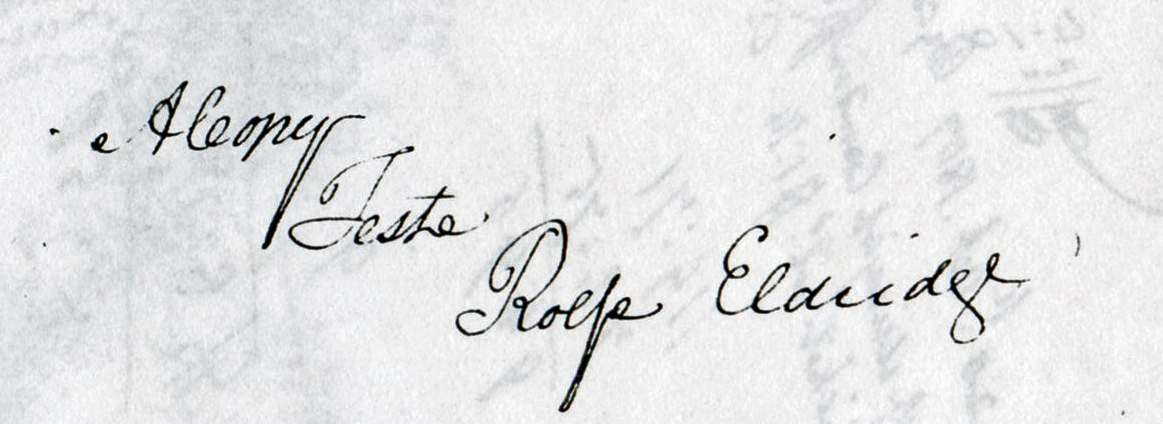 A Copy
Teste
Rolfe Eldridge